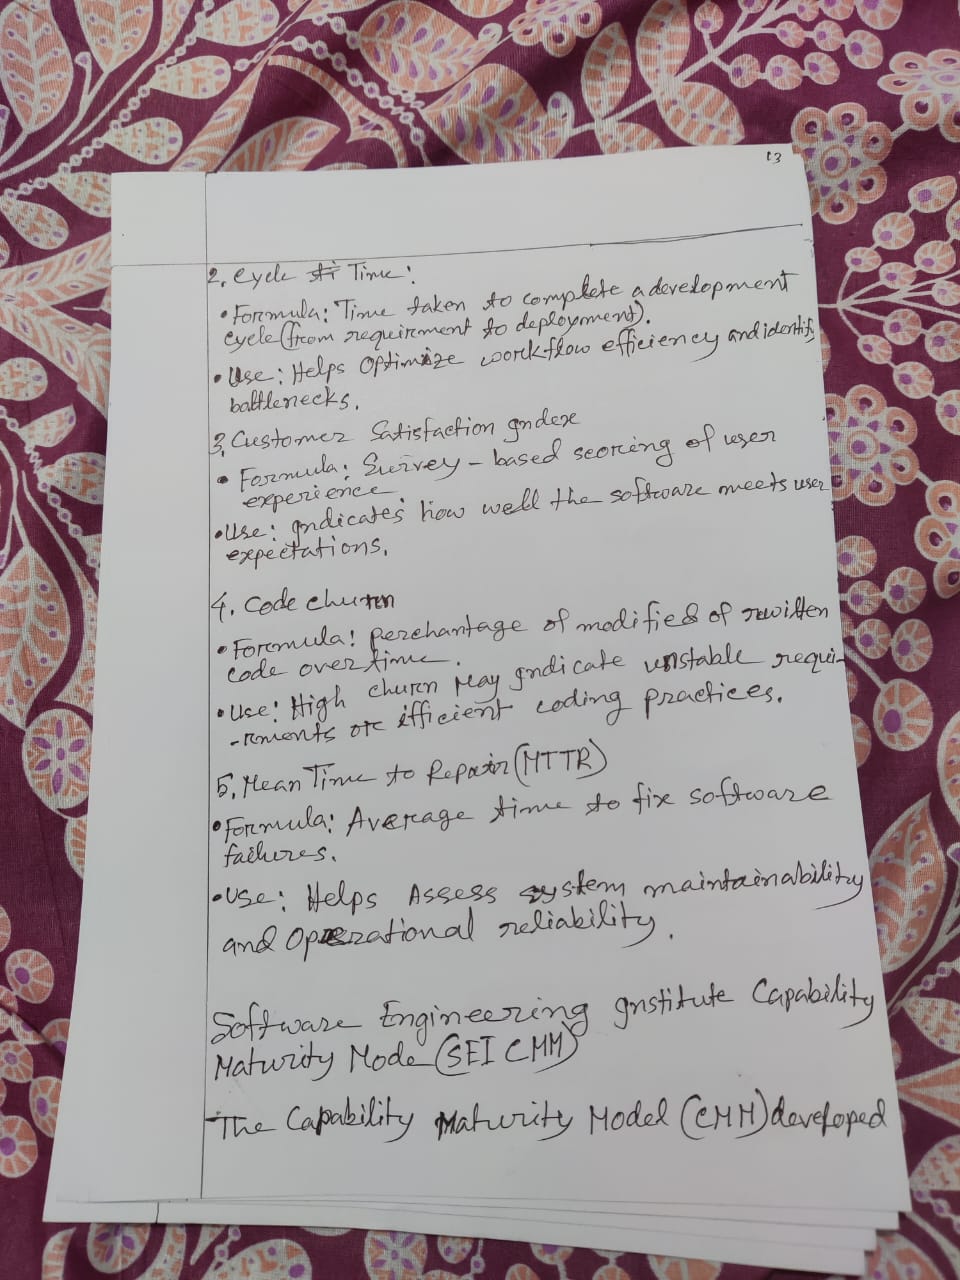 13
2. Cycle Time:
• Formula: Time taken to complete a development
cycle (from requirment to deployment).
• Use: Helps Optimize workflow efficiency and identify
battlenecks.
3. Customer Satisfaction Index
• Formula: Survey-based scoring of user
experience.
• Use: Indicates how well the software meets user
expectations.
4. Code churn
• Formula: perchantage of modified of rewitten
code over time.
• Use: High churn May Indicate unstable requi-
-rments or ifficient coding practices.
5. Mean Time to Repair (MTTR)
• Formula: Average time to fix software
failures.
• Use: Helps Assess system maintainability
and Operational reliability.
Software Engineering Institute Capability
Maturity Mode (SEI CMM)
The Capability Maturity Model (CMM) developed